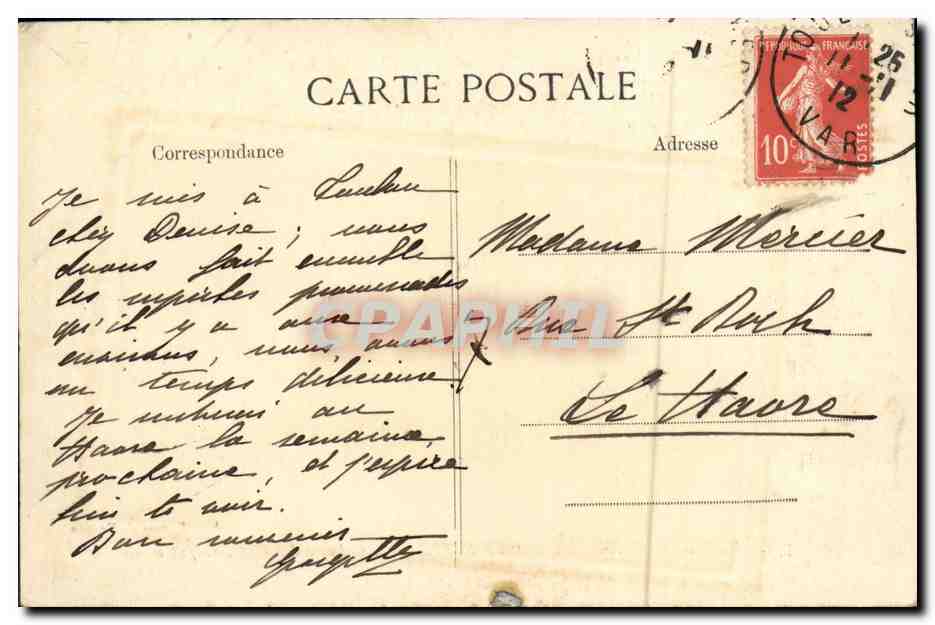 CARTE POSTALE
Correspondance
Adresse
REPUBLIQUE FRANÇAISE
10c
POSTES
TOUL
11 25
12 -11
VAR
Je suis à Toulon
chez Denise ; nous
avons fait ensemble
les superbes promenades
qu'il y a aux
environs, nous avons
un temps délicieux.
Je rentrerai au
Havre la semaine
prochaine, et j'espère
bien te voir.
Bon souvenir
Georgette
Madame Mercier
7 Rue St Roch
Le Havre
CPARPHIL